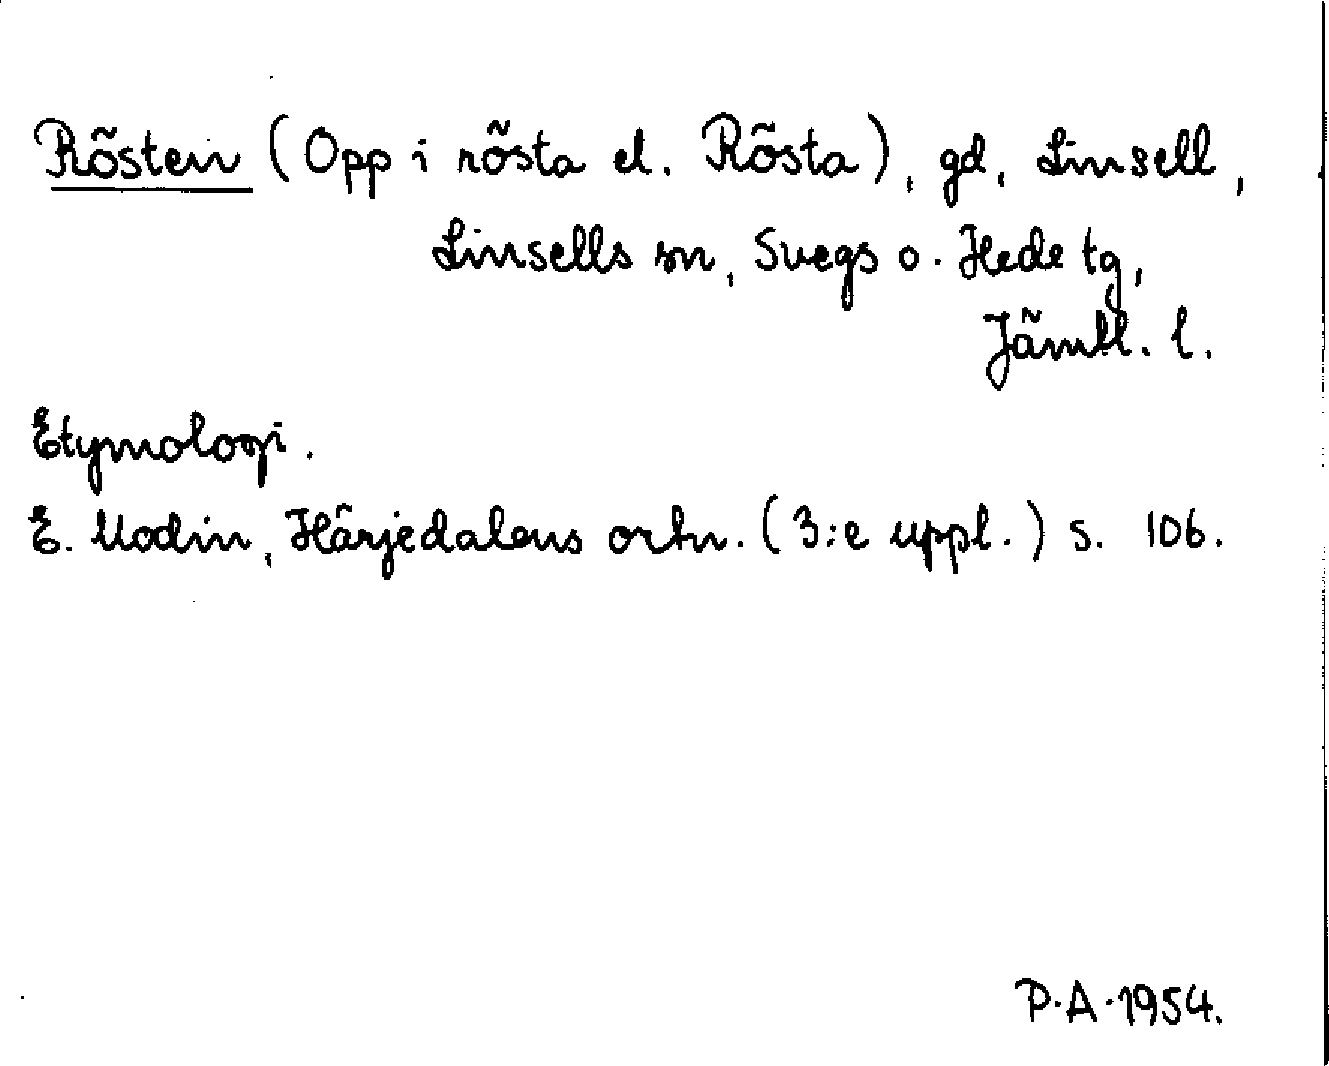 Rösten (Opp i rösta el. Rösta), gd, Linsell,
Linsells sn, Svegs o. Hede tg,
Jämtl. l.
Etymologi.
E. Modin, Härjedalens ortn. (3:e uppl.) s. 106.
P.A. 1954.